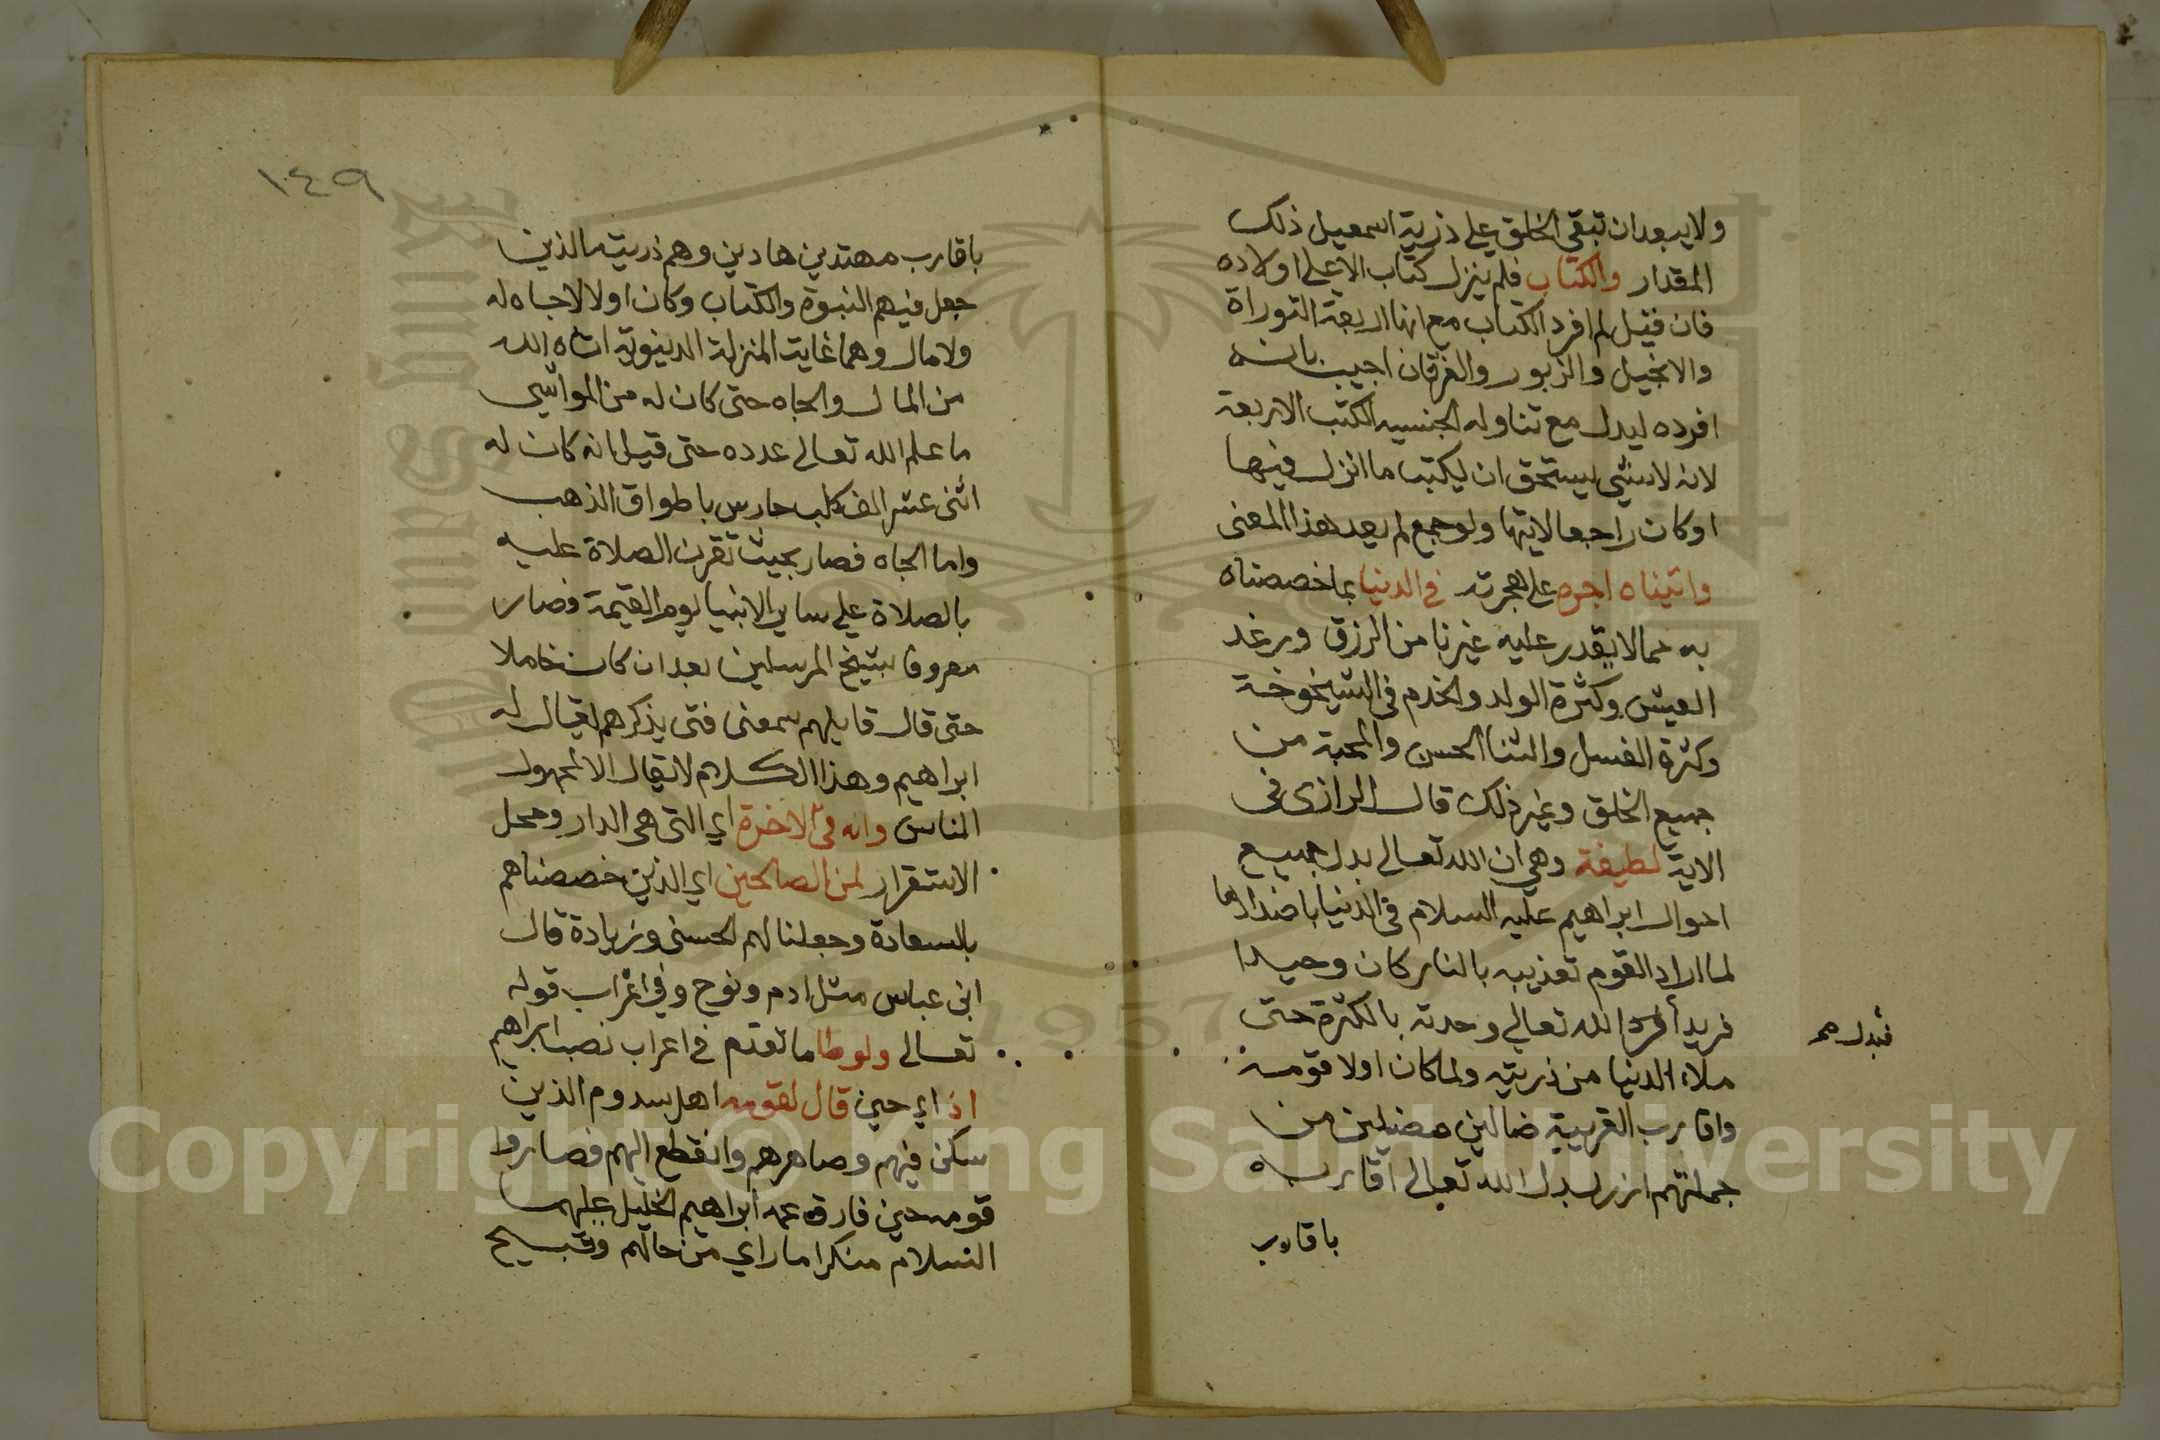 ولا يبعد ان تبقي الخلق علي ذرية اسمعيل ذلك
المقدار والكتاب فلم ينزل كتاب الا علي اولاده
فان قيل لم افرد الكتاب مع انها اربعة التوراة
والانجيل والزبور والفرقان اجيب بانه
افرده ليدل مع تناوله الجنسيه الكتب الاربعة
لانه لا شئي يستحق ان يكتب ما انزل فيها
او كان راجعا لايتها ولو جمع لم يعد هذا المعنى
واتيناه اجره علي هجرته في الدنيا بما خصصناه
به مما لا يقدر عليه غيرنا من الرزق ورغد
العيش وكثرة الولد والخدم في الشيخوخة
وكثرة النسل والثنا الحسن والمحبة من
جميع الخلق وغير ذلك قال الرازي في
الاية لطيفة وهي ان الله تعالى بدل جميع
احوال ابراهيم عليه السلام في الدنيا باضدادها
لما اراد القوم تعذيبه بالنار كان وحيدا
فريدا الله تعالي وحدته بالكثرة حتى
فبدل صح
ملاء الدنيا من ذريته ولما كان اولا قومه
واقارب القريبة ضالين مضلين من
جملتهم ازر بدل الله تعالى اقاربه
باقارب
١٤٩
باقارب مهتدين هادين وهم ذريته الذين
جعل فيهم النبوة والكتاب وكان اولا لا جاه له
ولا مال وهما غاية المنزلة الدنيوية اتاه الله
من المال والجاه حتى كان له من المواشي
ما علم الله تعالى عدده حتى قيل انه كان له
اثنى عشر الف كلب حارس باطواق الذهب
واما الجاه فصار بحيث تقرن الصلاة عليه
بالصلاة علي ساير الانبيا يوم القيمة فصار
معروفا بشيخ المرسلين بعد ان كان خاملا
حتى قال قايلهم سمعنى فتى يذكرهم يقال له
ابراهيم وهذا الكلام لا يقال الا لمجهول
الناس وانه في الاخرة اي التي هي الدار ومحل
الاستقرار لمن الصالحين اي الذين خصصناهم
بالسعادة وجعلنا لهم الحسنى وزيادة قال
ابن عباس مثل ادم ونوح وفي اعراب قوله
تعالى ولوطا ما تقدم في اعراب نصب ابراهيم
اذ اي حين قال لقومه اهل سدوم الذين
سكن فيهم وصاهرهم وانقطع اليهم فصاروا
قومه حين فارق عمه ابراهيم الخليل عليهما
السلام منكرا ما راي من حالهم وقبيح
King Saud University
1957
Copyright © King Saud University